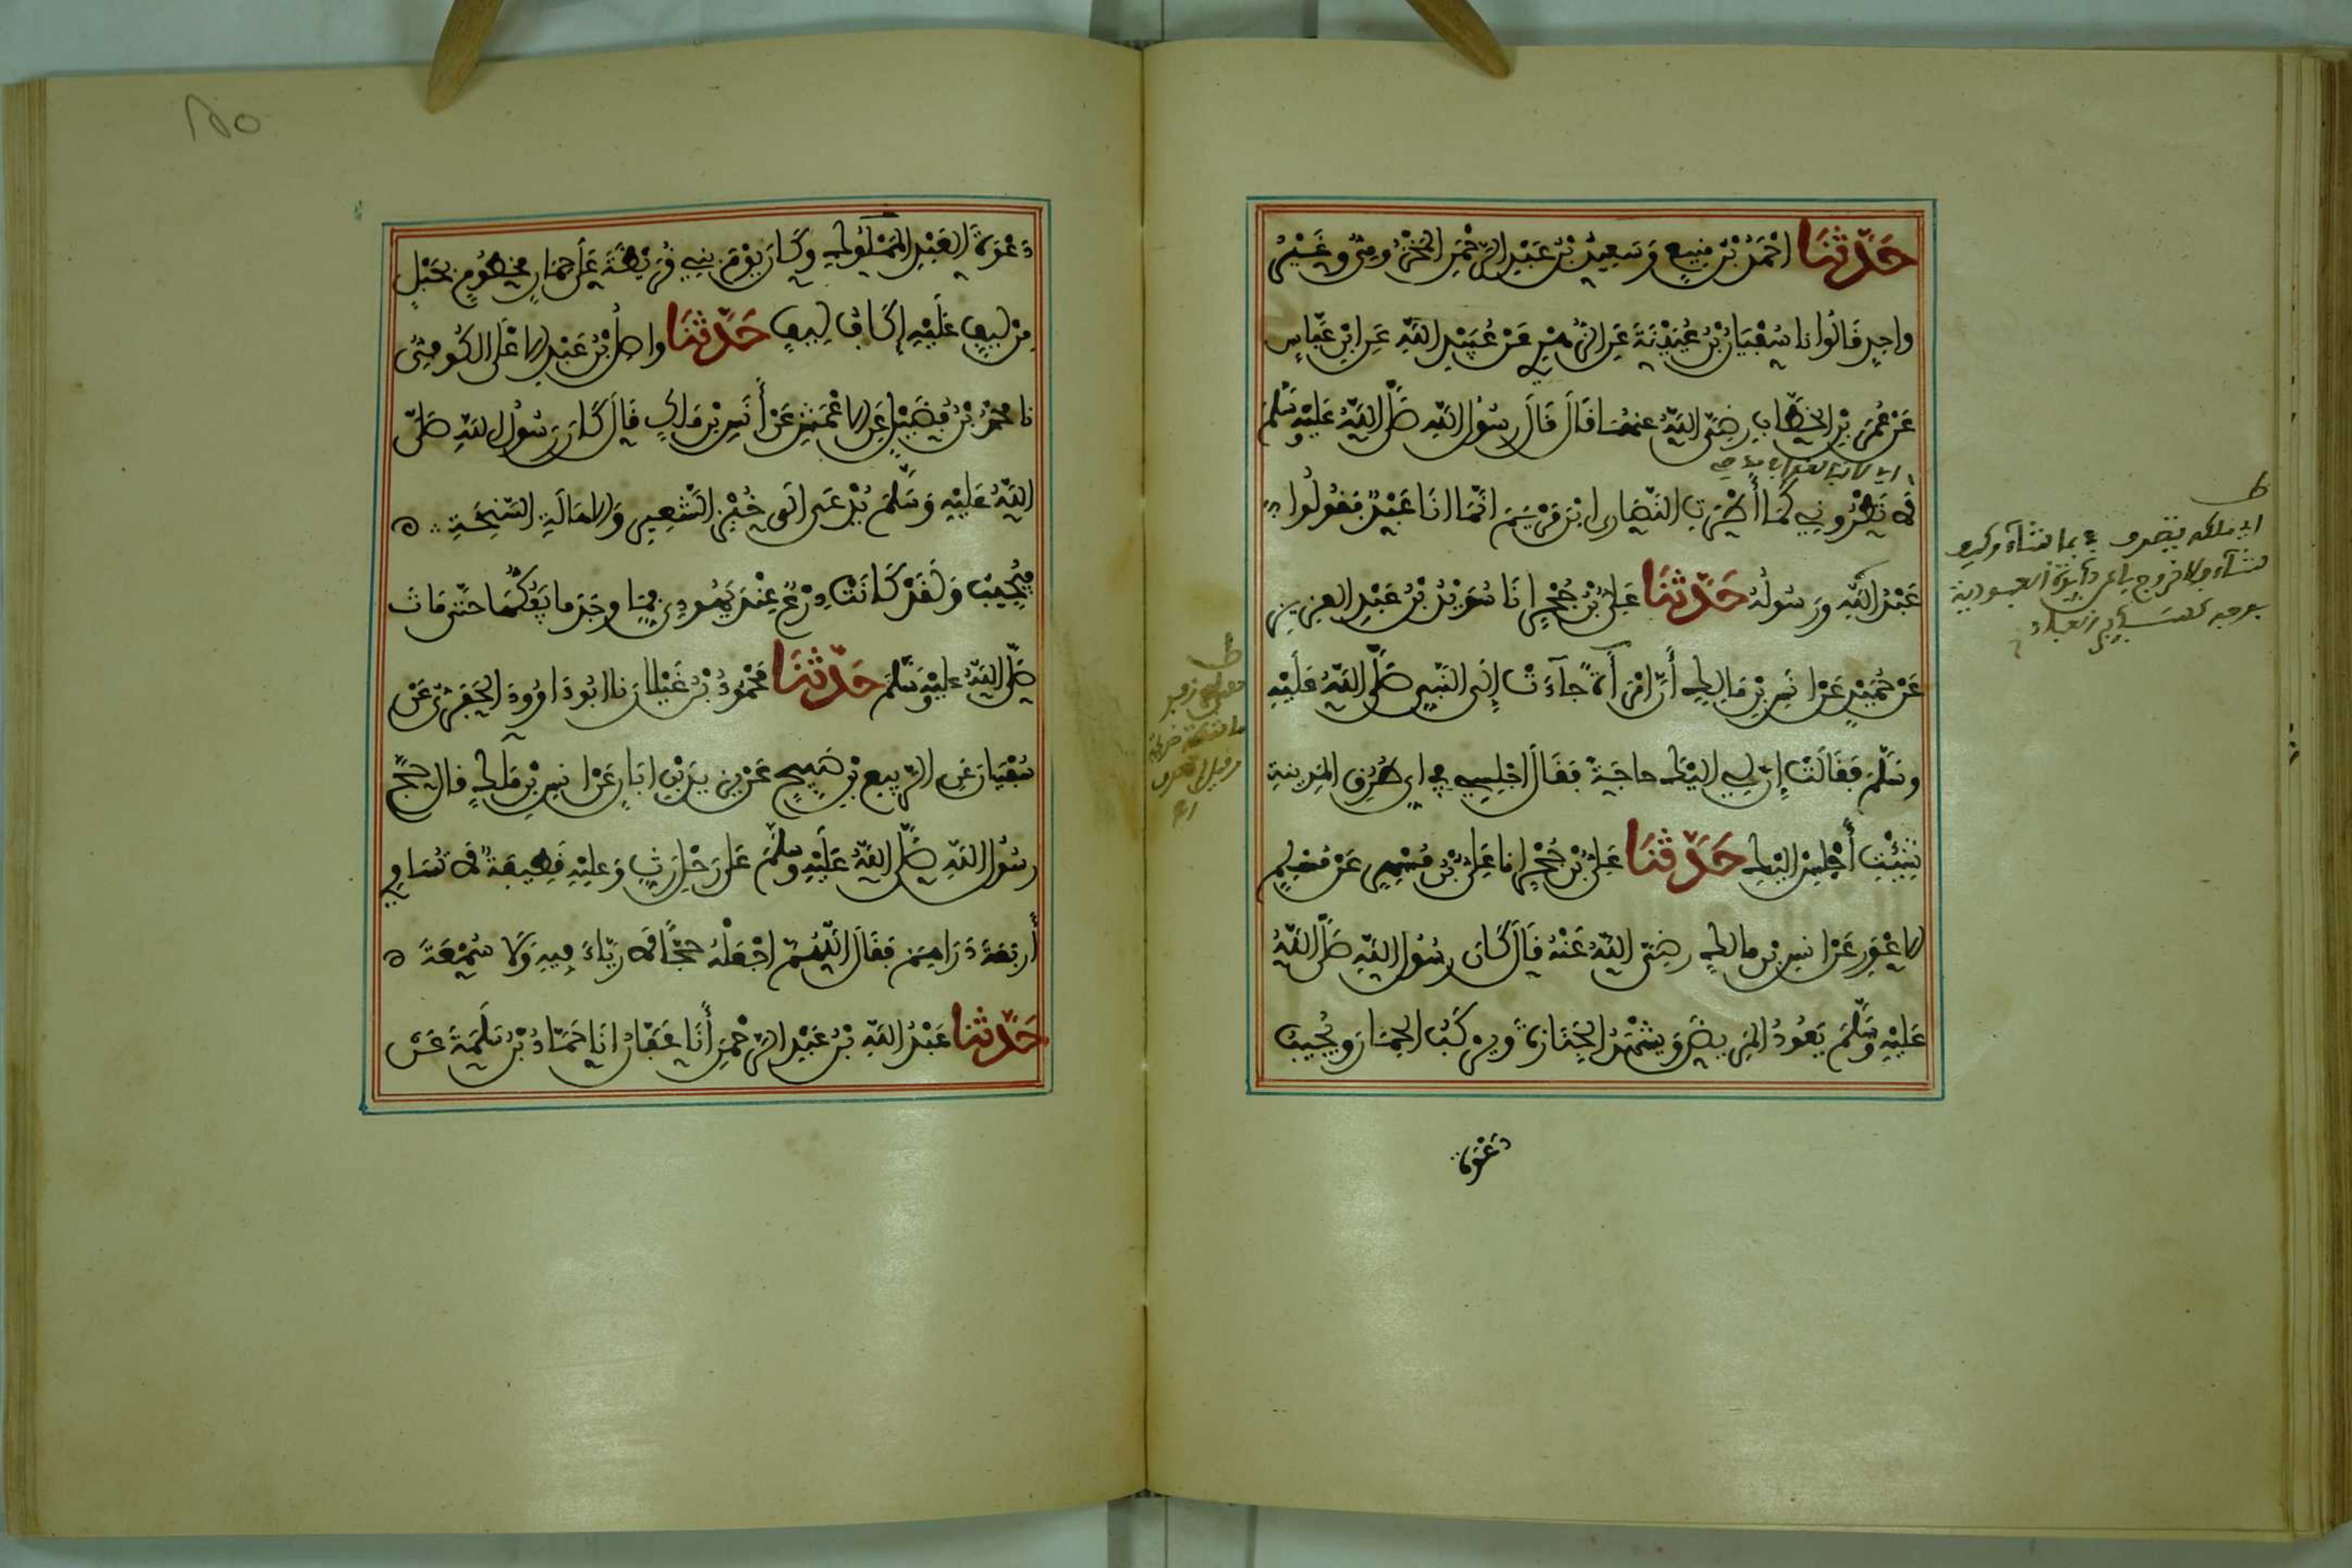 حَدَّثَنَا احْمَدُ بْنُ مَنِيعٍ وَسَعِيدُ بْنُ عَبْدِ الرَّحْمَنِ الْمَخْزُومِيُّ وَغَيْرُ
واحِدٍ قَالُوا نا سُفْيَانُ بْنُ عُيَيْنَةَ عَنِ الزُّهْرِيِّ عَنْ عُبَيْدِ اللَّهِ عَنِ ابْنِ عَبَّاسٍ
عَنْ عُمَرَ بْنِ الْخَطَّابِ رضِيَ اللَّهُ عنهُمَا قَالَ قَالَ رسُولُ اللَّهِ صَلَّى اللَّهُ عَلَيْهِ وَسَلَّمَ
لَا تُطْرُونِي كَمَا أَطْرَتِ النَّصَارى ابْنَ مَرْيَمَ انَّمَا انَا عَبْدٌ فَقُولُوا
عَبْدُ اللَّهِ وَرَسُولُهُ حَدَّثَنَا عَلِيُّ بْنُ حُجْرٍ انَا سُوَيْدُ بْنُ عَبْدِ العزِيزِ
عَنْ حُمَيْدٍ عَنْ انَسِ بْنِ مَالِكٍ أَنَّ امْرَأَةً جَآءَتْ إِلَى النَّبِيِّ صَلَّى اللَّهُ عَلَيْهِ
وسَلَّمَ فَقَالَتْ إِنَّ لِي اليْكَ حاجَةً فَقَالَ اجْلِسِي فِي أي طُرُقِ المَدِينَةِ
شِئْتِ أَجْلِسْ اليْكِ حَدَّثَنَا عَلِيُّ بْنُ حُجْرٍ انا عَلِيُّ بْنُ مُسْهِرٍ عَنْ مُسْلِمٍ
الاعْوَرِ عَنْ انسِ بْنِ مالِكٍ رضِيَ اللَّهُ عَنْهُ قَالَ كَانَ رسُولُ اللَّهِ صَلَّى اللَّهُ
عَلَيْهِ وَسَلَّمَ يَعُودُ المَرِيضَ وَيَشْهَدُ الجَنَازَةَ وَيرْكَبُ الحِمَارَ وَيُجِيبُ
دَعْوَةَ
دَعْوَةَ العَبْدِ المَمْلُوكِ وَكَانَ يَوْمَ بَنِي قُرَيْظَةَ عَلَى حِمَارٍ مَخْطُومٍ بِحَبْلٍ
مِنْ لِيفٍ عَلَيْهِ إِكَافٌ لِيفٍ حَدَّثَنَا واصِلُ بْنُ عَبْدِ الاعْلَى الكُوفِيُّ
نا مُحَمَّدُ بْنُ فُضَيْلٍ عَنِ الاعْمَشِ عَنْ أَنَسِ بْنِ مَالِكٍ قَالَ كَانَ رَسُولُ اللَّهِ صَلَّى
اللَّهُ عَلَيْهِ وَسَلَّمَ يُدْعَى الَى خُبْزِ الشَّعِيرِ وَالاهَالَةِ السَّنِخَةِ
فَيُجِيبُ وَلَقَدْ كَانَتْ دِرْعٌ عِنْدَ يَهُودِيٍّ فَمَا وجَدَ ما يَفُكُّهَا حَتَّى مَاتَ
صَلَّى اللَّهُ عليْهِ وَسَلَّمَ حَدَّثَنَا مَحْمُودُ بْنُ غَيْلانَ نا ابُو دَاوُودَ الحَفَرِيُّ عَنْ
سُفْيَانَ عَنِ الرَّبِيعِ بْنِ صَبِيحٍ عَنْ يَزِيدَ بْنِ ابَانٍ عَنْ انسِ بْنِ مَالِكٍ قال حَجَّ
رسُولُ اللَّهِ صَلَّى اللَّهُ عَلَيْهِ وَسَلَّمَ عَلَى رَحْلٍ رَثٍّ وَعليْهِ قَطِيفَةٌ لَا تُسَاوِي
أَرْبَعَةَ دَرَاهِمَ فَقَالَ اللَّهُمَّ اجْعَلْهُ حَجًّا لَا رِيَاءَ فِيهِ وَلَا سُمْعَةَ
حَدَّثَنا عَبْدُ اللَّهِ بْنُ عَبْدِ الرَّحْمَنِ أَنَا عَفَّانُ انَا حَمَّادُ بْنُ سَلَمَةَ عَنْ